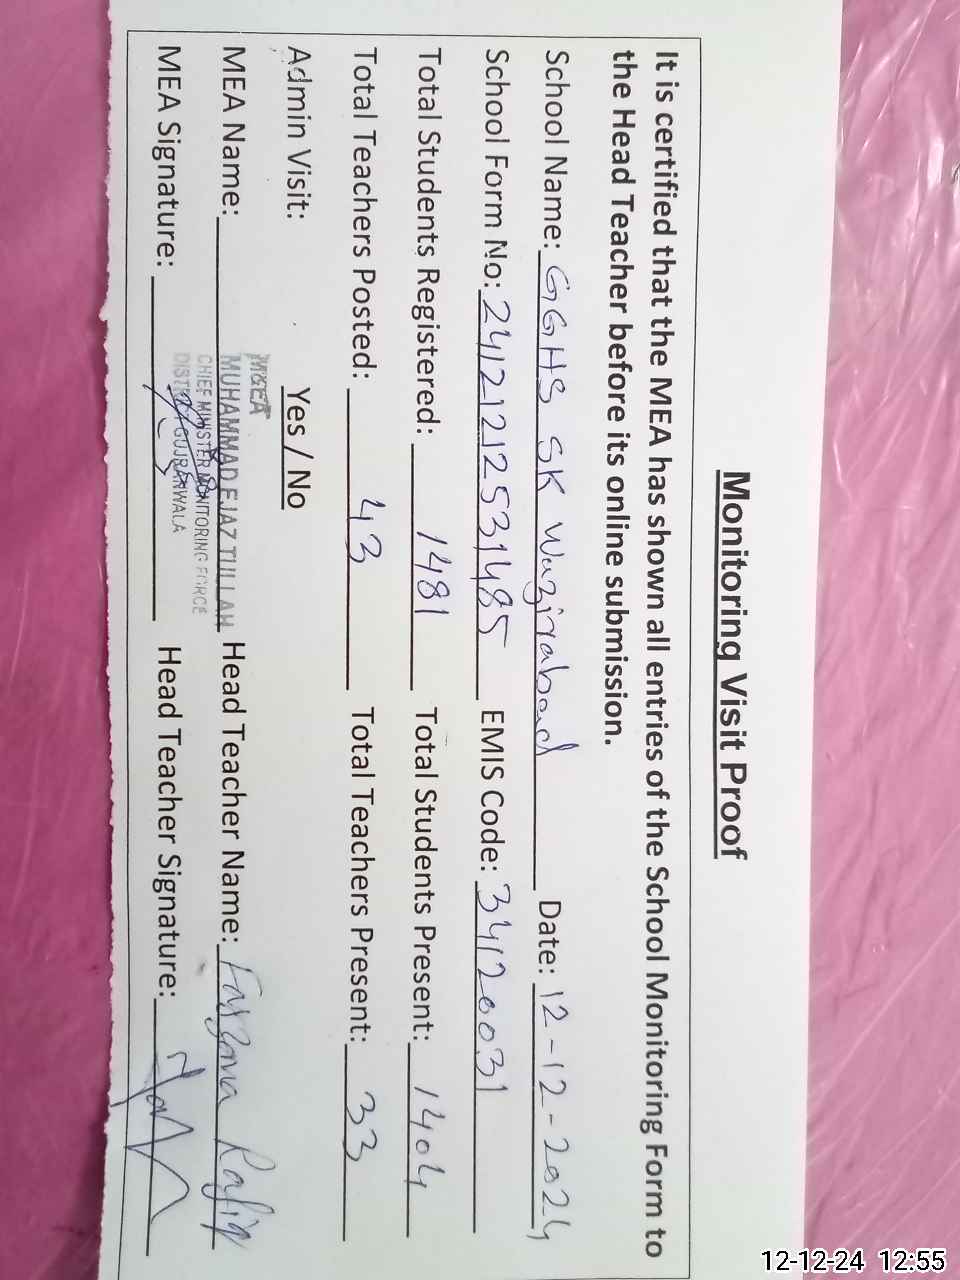 Monitoring Visit Proof
It is certified that the MEA has shown all entries of the School Monitoring Form to
the Head Teacher before its online submission.
School Name: GGHS SK Wazirabad Date: 12-12-2024
School Form No: 24121212531485 EMIS Code: 34120031
Total Students Registered: 1481 Total Students Present: 1404
Total Teachers Posted: 43 Total Teachers Present: 33
Admin Visit: Yes / No
M&EA
MEA Name: MUHAMMAD EJAZ TULLAH Head Teacher Name: Farzana Rafiq
CHIEF MINISTER MONITORING FORCE
MEA Signature: Head Teacher Signature:
DISTRICT GUJRANWALA
12-12-24 12:55